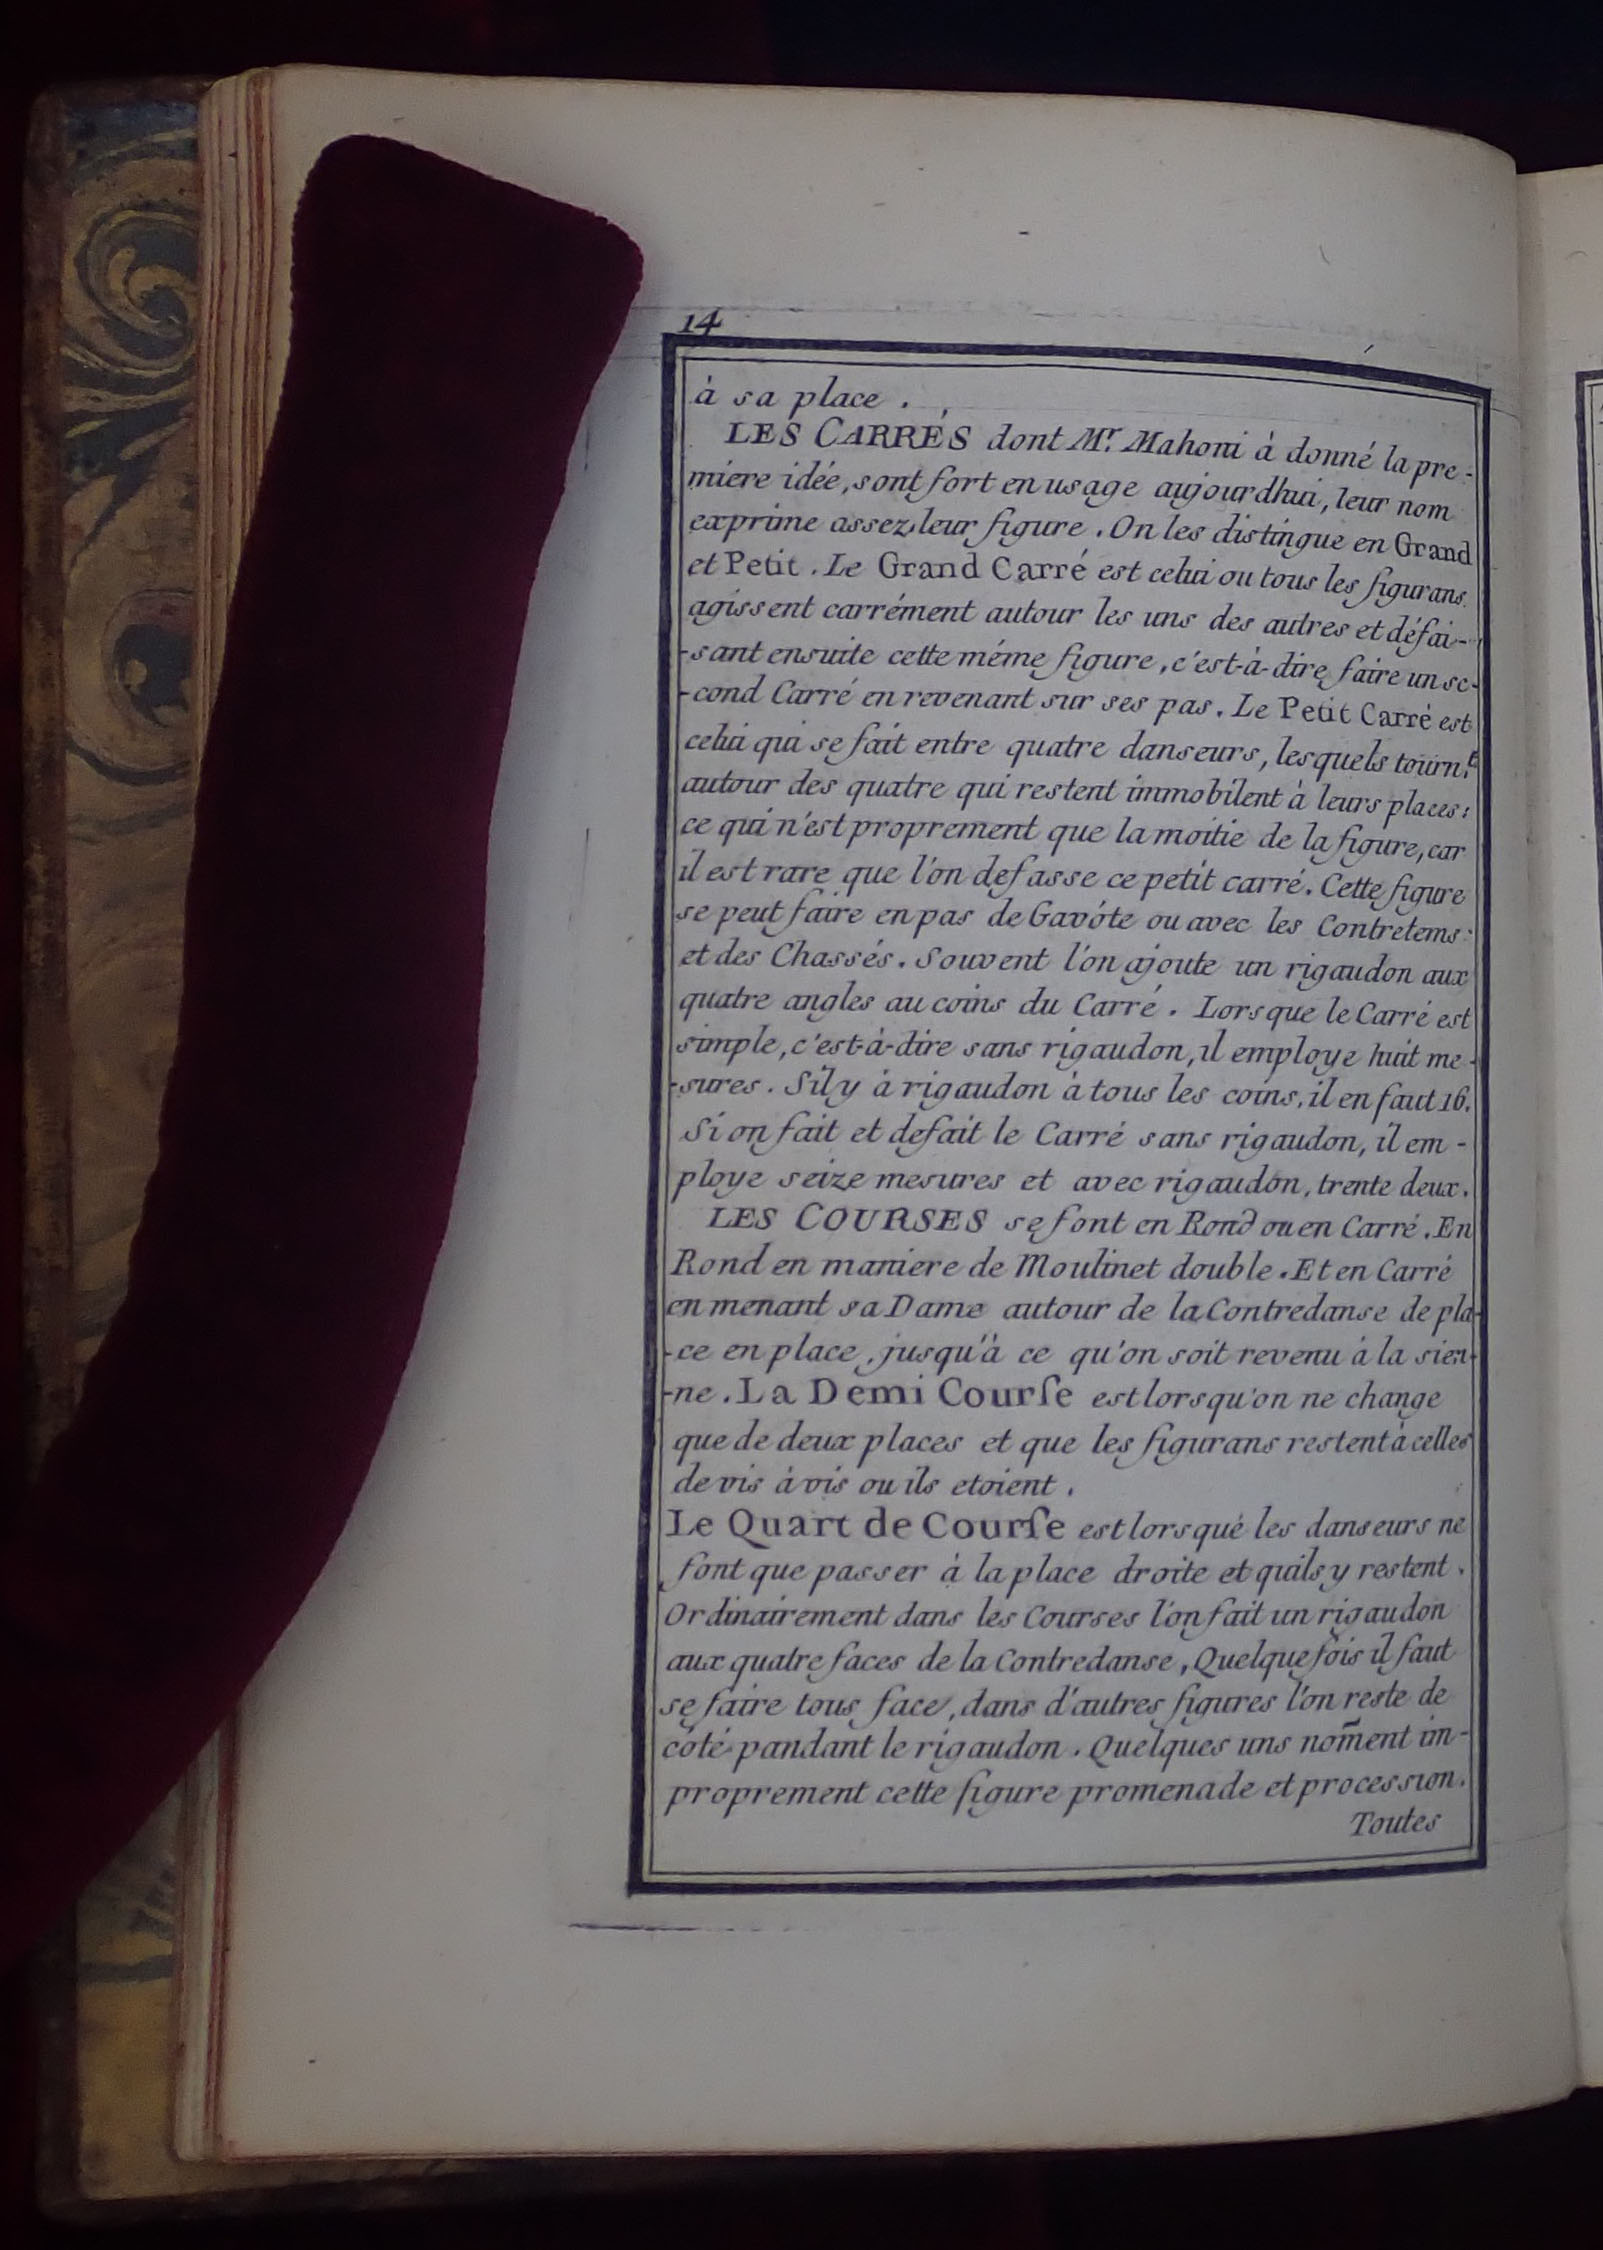 14
à sa place .
LES CARRÉS dont Mr. Mahoni à donné la pre-
miere idée, sont fort en usage aujourdhui, leur nom
exprime assez leur figure. On les distingue en Grand
et Petit. Le Grand Carré est celui ou tous les figurans
agissent carrément autour les uns des autres et défai-
-sant ensuite cette méme figure, c'est-à-dire faire un se-
-cond Carré en revenant sur ses pas. Le Petit Carré est
celui qui se fait entre quatre danseurs, lesquels tourn.t
autour des quatre qui restent immobilent à leurs places:
ce qui n'est proprement que la moitie de la figure, car
il est rare que l'on defasse ce petit carré. Cette figure
se peut faire en pas de Gavóte ou avec les Contretems
et des Chassés. Souvent l'on ajoute un rigaudon aux
quatre angles au coins du Carré. Lorsque le Carré est
simple, c'est-à-dire sans rigaudon, il employe huit me-
-sures. S'il y à rigaudon à tous les coins, il en faut 16.
Si on fait et defait le Carré sans rigaudon, il em-
ploye seize mesures et avec rigaudon, trente deux.
LES COURSES se font en Rond ou en Carré. En
Rond en maniere de Moulinet double. Et en Carré
en menant sa Dame autour de la Contredanse de pla-
-ce en place, jusqu'à ce qu'on soit revenu à la sien-
-ne. La Demi Courſe est lorsqu'on ne change
que de deux places et que les figurans restent à celles
de vis à vis ou ils etoient.
Le Quart de Courſe est lorsque les danseurs ne
font que passer à la place droite et quils y restent.
Ordinairement dans les Courses l'on fait un rigaudon
aux quatre faces de la Contredanse, Quelque fois il faut
se faire tous face, dans d'autres figures l'on reste de
côté pandant le rigaudon. Quelques uns nom̃ent im-
proprement cette figure promenade et procession.
Toutes